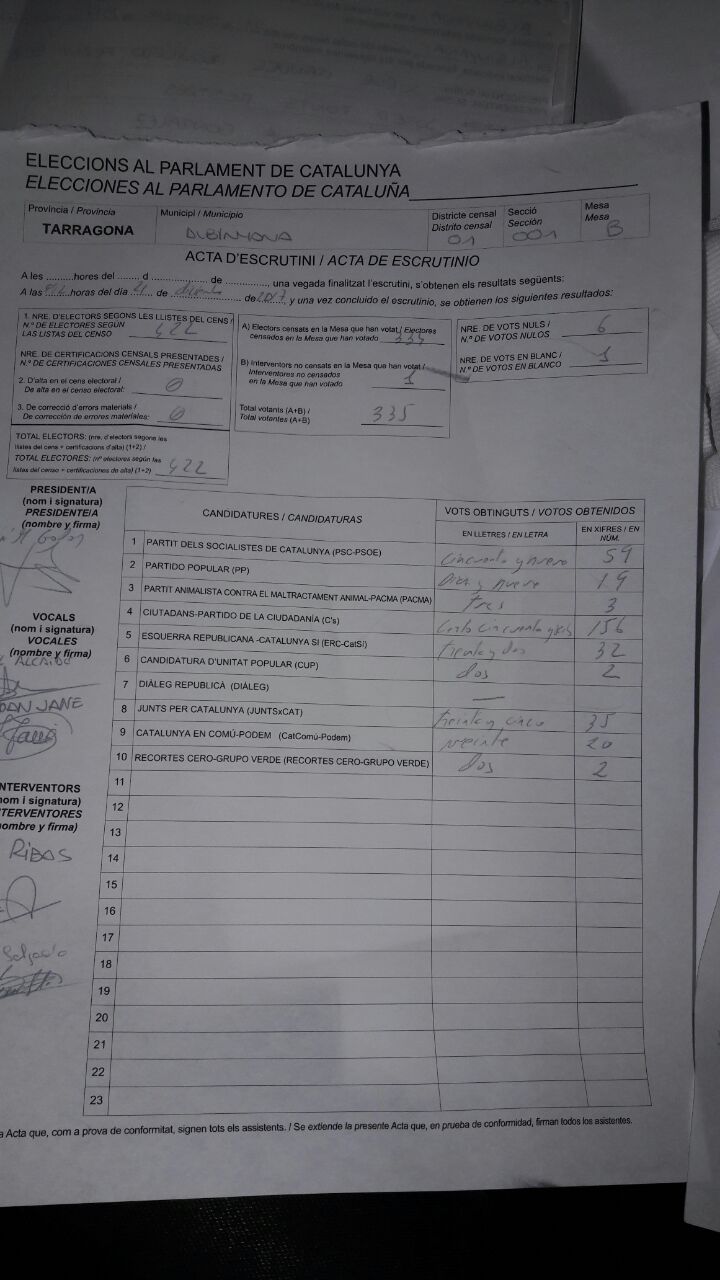 ELECCIONS AL PARLAMENT DE CATALUNYA
ELECCIONES AL PARLAMENTO DE CATALUÑA
Província / Provincia
TARRAGONA
Municipi / Municipio
ALBINYANA
Districte censal
Distrito censal
01
Secció
Sección
001
Mesa
Mesa
B
ACTA D'ESCRUTINI / ACTA DE ESCRUTINIO
A les ..........hores del ....... d .................. de .............., una vegada finalitzat l'escrutini, s'obtenen els resultats següents:
A las horas del día 21 de de 2017 y una vez concluido el escrutinio, se obtienen los siguientes resultados:
1. NRE. D'ELECTORS SEGONS LES LLISTES DEL CENS /
N.º DE ELECTORES SEGÚN
LAS LISTAS DEL CENSO 422
NRE. DE CERTIFICACIONS CENSALS PRESENTADES /
N.º DE CERTIFICACIONES CENSALES PRESENTADAS
2. D'alta en el cens electoral /
De alta en el censo electoral: 0
3. De correcció d'errors materials /
De corrección de errores materiales: 0
TOTAL ELECTORS: (nre. d'electors segons les
llistes del cens + certificacions d'alta) (1+2) /
TOTAL ELECTORES: (nº electores según las
listas del censo + certificaciones de alta) (1+2) 422
A) Electors censats en la Mesa que han votat / Electores
censados en la Mesa que han votado 334
B) Interventors no censats en la Mesa que han votat /
Interventores no censados
en la Mesa que han votado 1
Total votants (A+B) /
Total votantes (A+B) 335
NRE. DE VOTS NULS /
N.º DE VOTOS NULOS 6
NRE. DE VOTS EN BLANC /
N.º DE VOTOS EN BLANCO 1
PRESIDENT/A
(nom i signatura)
PRESIDENTE/A
(nombre y firma)
VOCALS
(nom i signatura)
VOCALES
(nombre y firma)
ALCAIDE
JOAN JANE
Jané
INTERVENTORS
(nom i signatura)
INTERVENTORES
(nombre y firma)
RIBAS
CANDIDATURES / CANDIDATURAS
VOTS OBTINGUTS / VOTOS OBTENIDOS
EN LLETRES / EN LETRA
EN XIFRES / EN NÚM.
1 PARTIT DELS SOCIALISTES DE CATALUNYA (PSC-PSOE) Cincuenta y nueve 59
2 PARTIDO POPULAR (PP) Diez y nueve 19
3 PARTIT ANIMALISTA CONTRA EL MALTRACTAMENT ANIMAL-PACMA (PACMA) Tres 3
4 CIUTADANS-PARTIDO DE LA CIUDADANÍA (C's) Ciento cincuenta y seis 156
5 ESQUERRA REPUBLICANA -CATALUNYA SÍ (ERC-CatSí) Treinta y dos 32
6 CANDIDATURA D'UNITAT POPULAR (CUP) dos 2
7 DIÀLEG REPUBLICÀ (DIÀLEG) —
8 JUNTS PER CATALUNYA (JUNTSxCAT) treinta y cinco 35
9 CATALUNYA EN COMÚ-PODEM (CatComú-Podem) veinte 20
10 RECORTES CERO-GRUPO VERDE (RECORTES CERO-GRUPO VERDE) dos 2
11
12
13
14
15
16
17
18
19
20
21
22
23
a Acta que, com a prova de conformitat, signen tots els assistents. / Se extiende la presente Acta que, en prueba de conformidad, firman todos los asistentes.